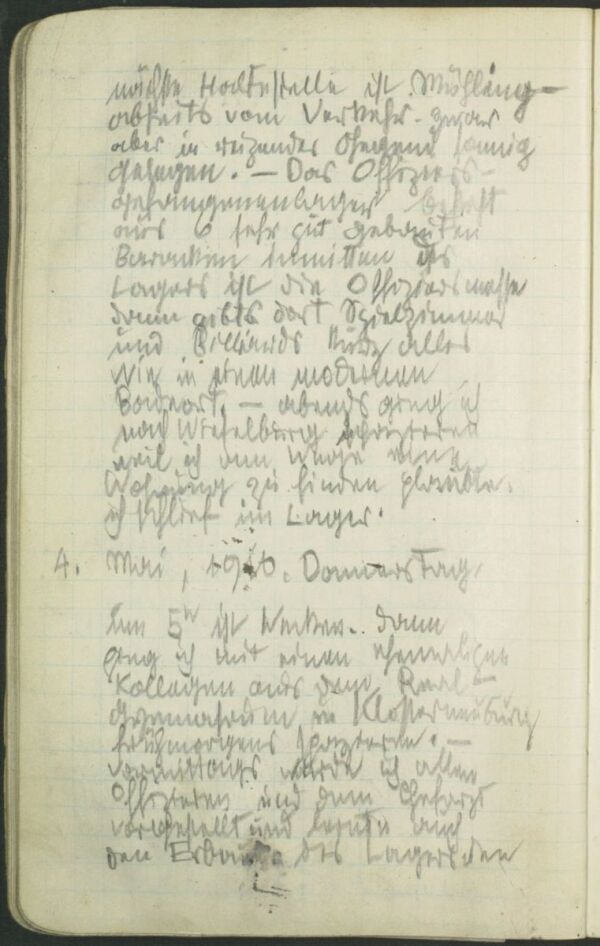 nächste Haltestelle ist Mühling –
abseits vom Verkehr – zwar
aber in reizender Gegend sonnig
gelegen. – Das Offiziers –
gefangenenlager besteht
aus 6 sehr gut gebauten
Baracken inmitten des
Lagers ist die Offiziersmesse
dann gibts dort Spielzimmer
und Billiards kurz alles
wie in einem modernen
Badeort. – abends ging ich
nach Wieselburg spazieren
weil ich am Wege eine
Wohnung zu finden glaubte.
ich schlief im Lager.
4. Mai, 1916. Donnerstag,
Um 5h ist Wecken.. dann
ging ich mit einen ehemaligen
Kollegen aus dem Real –
Gymnasium in Klosterneuburg
frühmorgens spazieren. –
Vormittags wurde ich allen
Offizieren und dem Chefarzt
vorgestellt und lernte auch
den Erbauer des Lagers den